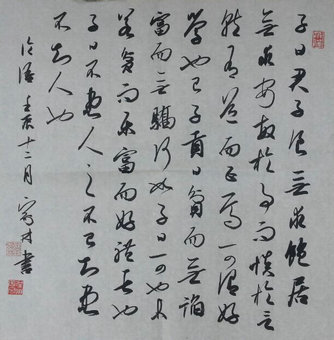 子曰君子食無求飽居
無求安敏於事而慎於言
就有道而正焉可謂好
學也已子貢曰貧而無諂
富而無驕何如子曰可也未
若貧而樂富而好禮者也
子曰不患人之不己知患
不知人也
論語 壬辰十二月 書